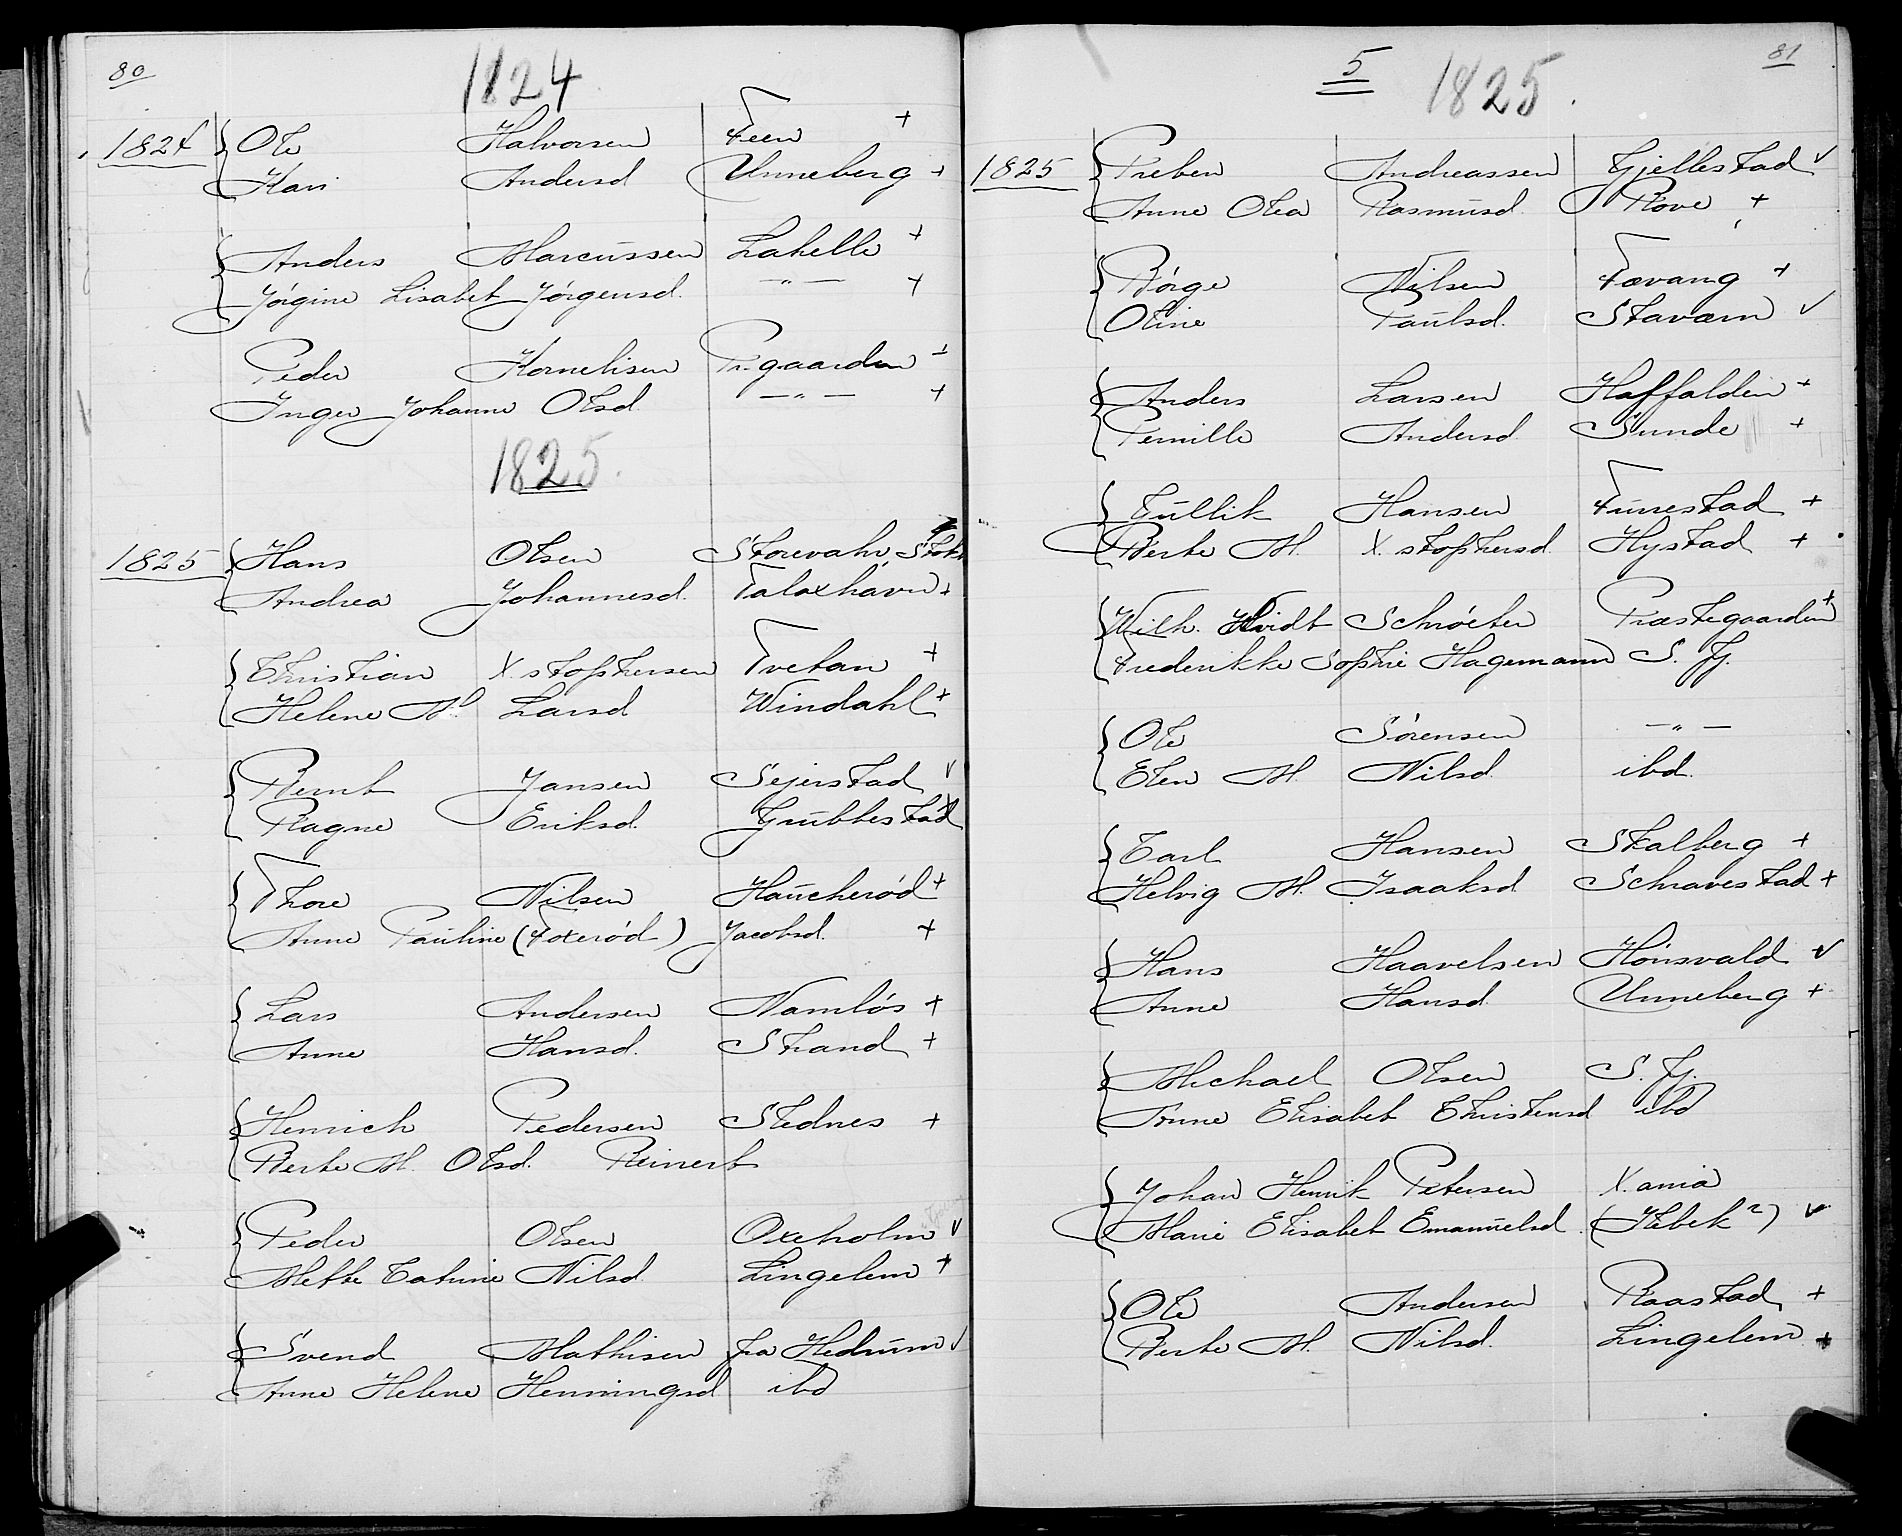 80
1824
1824 Ole Halvorsen Feen +
Kari Andersd Unneberg +
Anders Marcussen Lahelle +
Jørgine Lisabet Jørgensd. —"— +
Peder Kornelisen Pr.gaarden +
Inger Johanne Olsd. —"— +
1825.
1825 Hans Olsen Storevahr Stok
Andrea Johannesd. Taloxhavn +
Christian X.stophersen Tvetan +
Helene M. Larsd Windahl +
Bernt Jansen Sejerstad v
Ragne Eriksd. Grubbestad
Thore Nilsen Haucherød +
Anne Pauline (Foxerød) Jacobsd. +
Lars Andersen Namløs +
Anne Hansd. Strand +
Henrich Pedersen Stednes +
Berte M. Olsd. Reinert
Peder Olsen Oxeholm v
Mette Catrine Nilsd. Lingelem +
Svend Mathisen fra Hedrum v
Anne Helene Henningsd ibd
81
5 1825.
1825 Preben Andreassen Gjellestad v
Anne Olea Rasmusd. Rove +
Børge Nilsen Fævang +
Oline Paulsd. Staværn v
Anders Larsen Haffalden +
Pernille Andersd. Sunde +
Gullik Hansen Furrestad +
Berte M. X.stophersd. Hystad +
Wilh. Hvidt Schrøeter Præstegaarden +
Frederikke Sophie Hagemann S. Fj.
Ole Sørensen —"—
Elen M. Nilsd. ibd.
Carl Hansen Skalberg +
Helvig M. Isaaksd. Schravestad +
Hans Haavelsen Hønsvald v
Anne Hansd. Unneberg +
Michael Olsen S. Fj.
Anne Elisabet Christensd ibd
Johan Henrik Petersen X.ania
Marie Elisabet Emanuelsd. v
Ole Andersen Raastad +
Berte M. Nilsd. Lingelem +